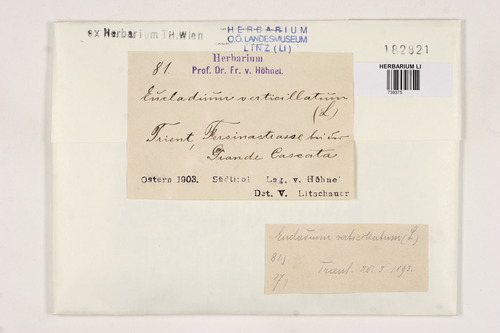 ex Herbarium TH.Wien
HERBARIUM
O.Ö. LANDESMUSEUM
LINZ (LI)
182821
HERBARIUM LI
Herbarium
Prof. Dr. Fr. v. Höhnel.
81.
Eucladium verticillatum
(L)
Trient, Fersinastrasse bei der
Grande Cascata
Ostern 1903. Südtirol Leg. v. Höhnel
Det. V. Litschauer
Eucladium verticillatum (L)
81)
Trient.